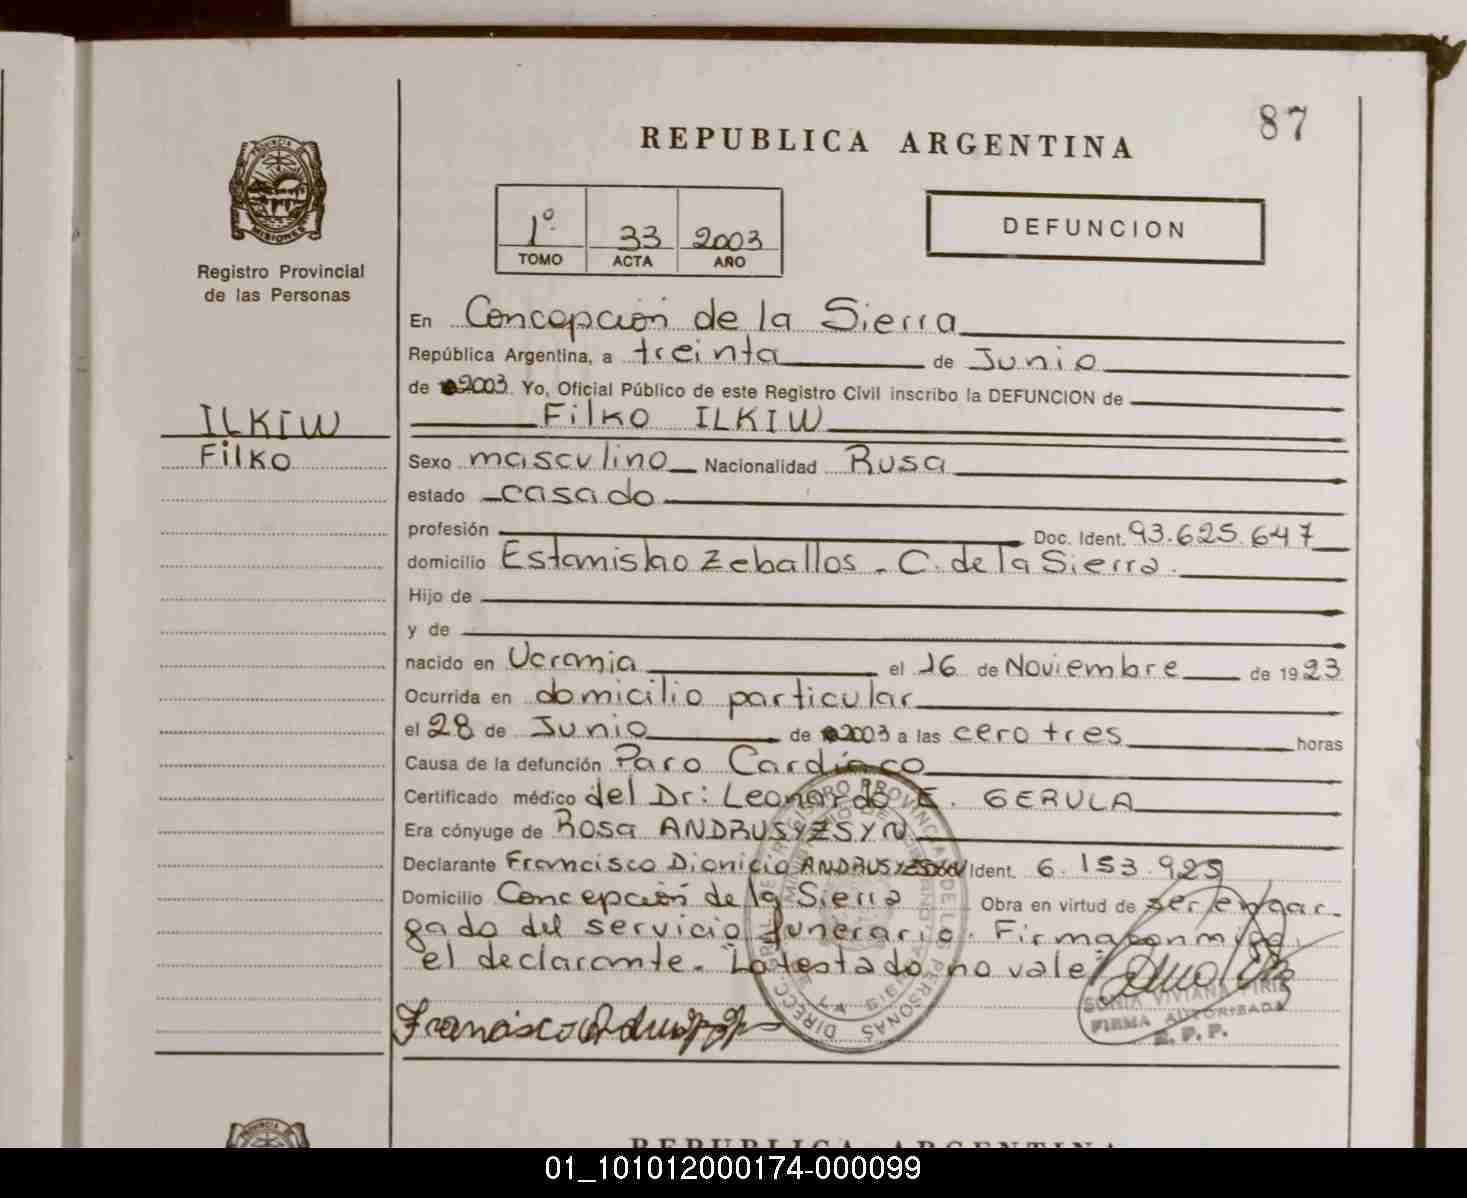 87
REPUBLICA ARGENTINA
PROVINCIA DE
MISIONES
Registro Provincial
de las Personas
1º 33 2003
TOMO ACTA AÑO
DEFUNCION
En Concepción de la Sierra
República Argentina, a treinta de Junio
de 2003 Yo, Oficial Público de este Registro Civil inscribo la DEFUNCION de
Filko ILKIW
ILKIW
Filko
Sexo masculino Nacionalidad Rusa
estado casado
profesión Doc. Ident. 93.625.647
domicilio Estanislao Zeballos - C. de la Sierra.
Hijo de
y de
nacido en Ucrania el 16 de Noviembre de 1923
Ocurrida en domicilio particular
el 28 de Junio de 2003 a las cero tres horas
Causa de la defunción Paro Cardíaco
Certificado médico del Dr: Leonardo E. GERULA
Era cónyuge de Rosa ANDRUSYZSYN
Declarante Francisco Dionicio Ident. 6.153.925
Domicilio Concepción de la Sierra Obra en virtud de ser encar-
gado del servicio funerario. Firma conmigo
el declarante. "Lo testado no vale"
Francisco
SONIA VIVIANA
FIRMA AUTORIZADA
R. P. P.
REPUBLICA ARGENTINA
01_101012000174-000099